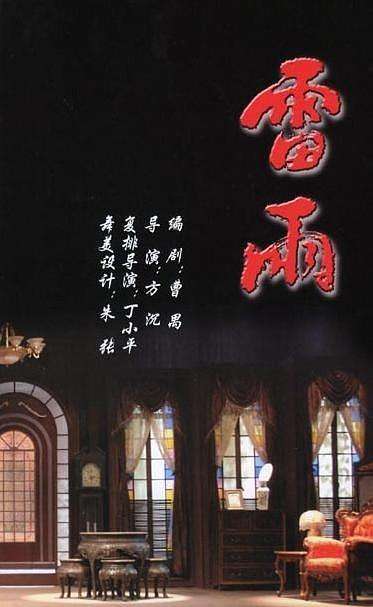 雷雨
编剧:曹禺
导演:方沉
复排导演:丁小平
舞美设计:朱张